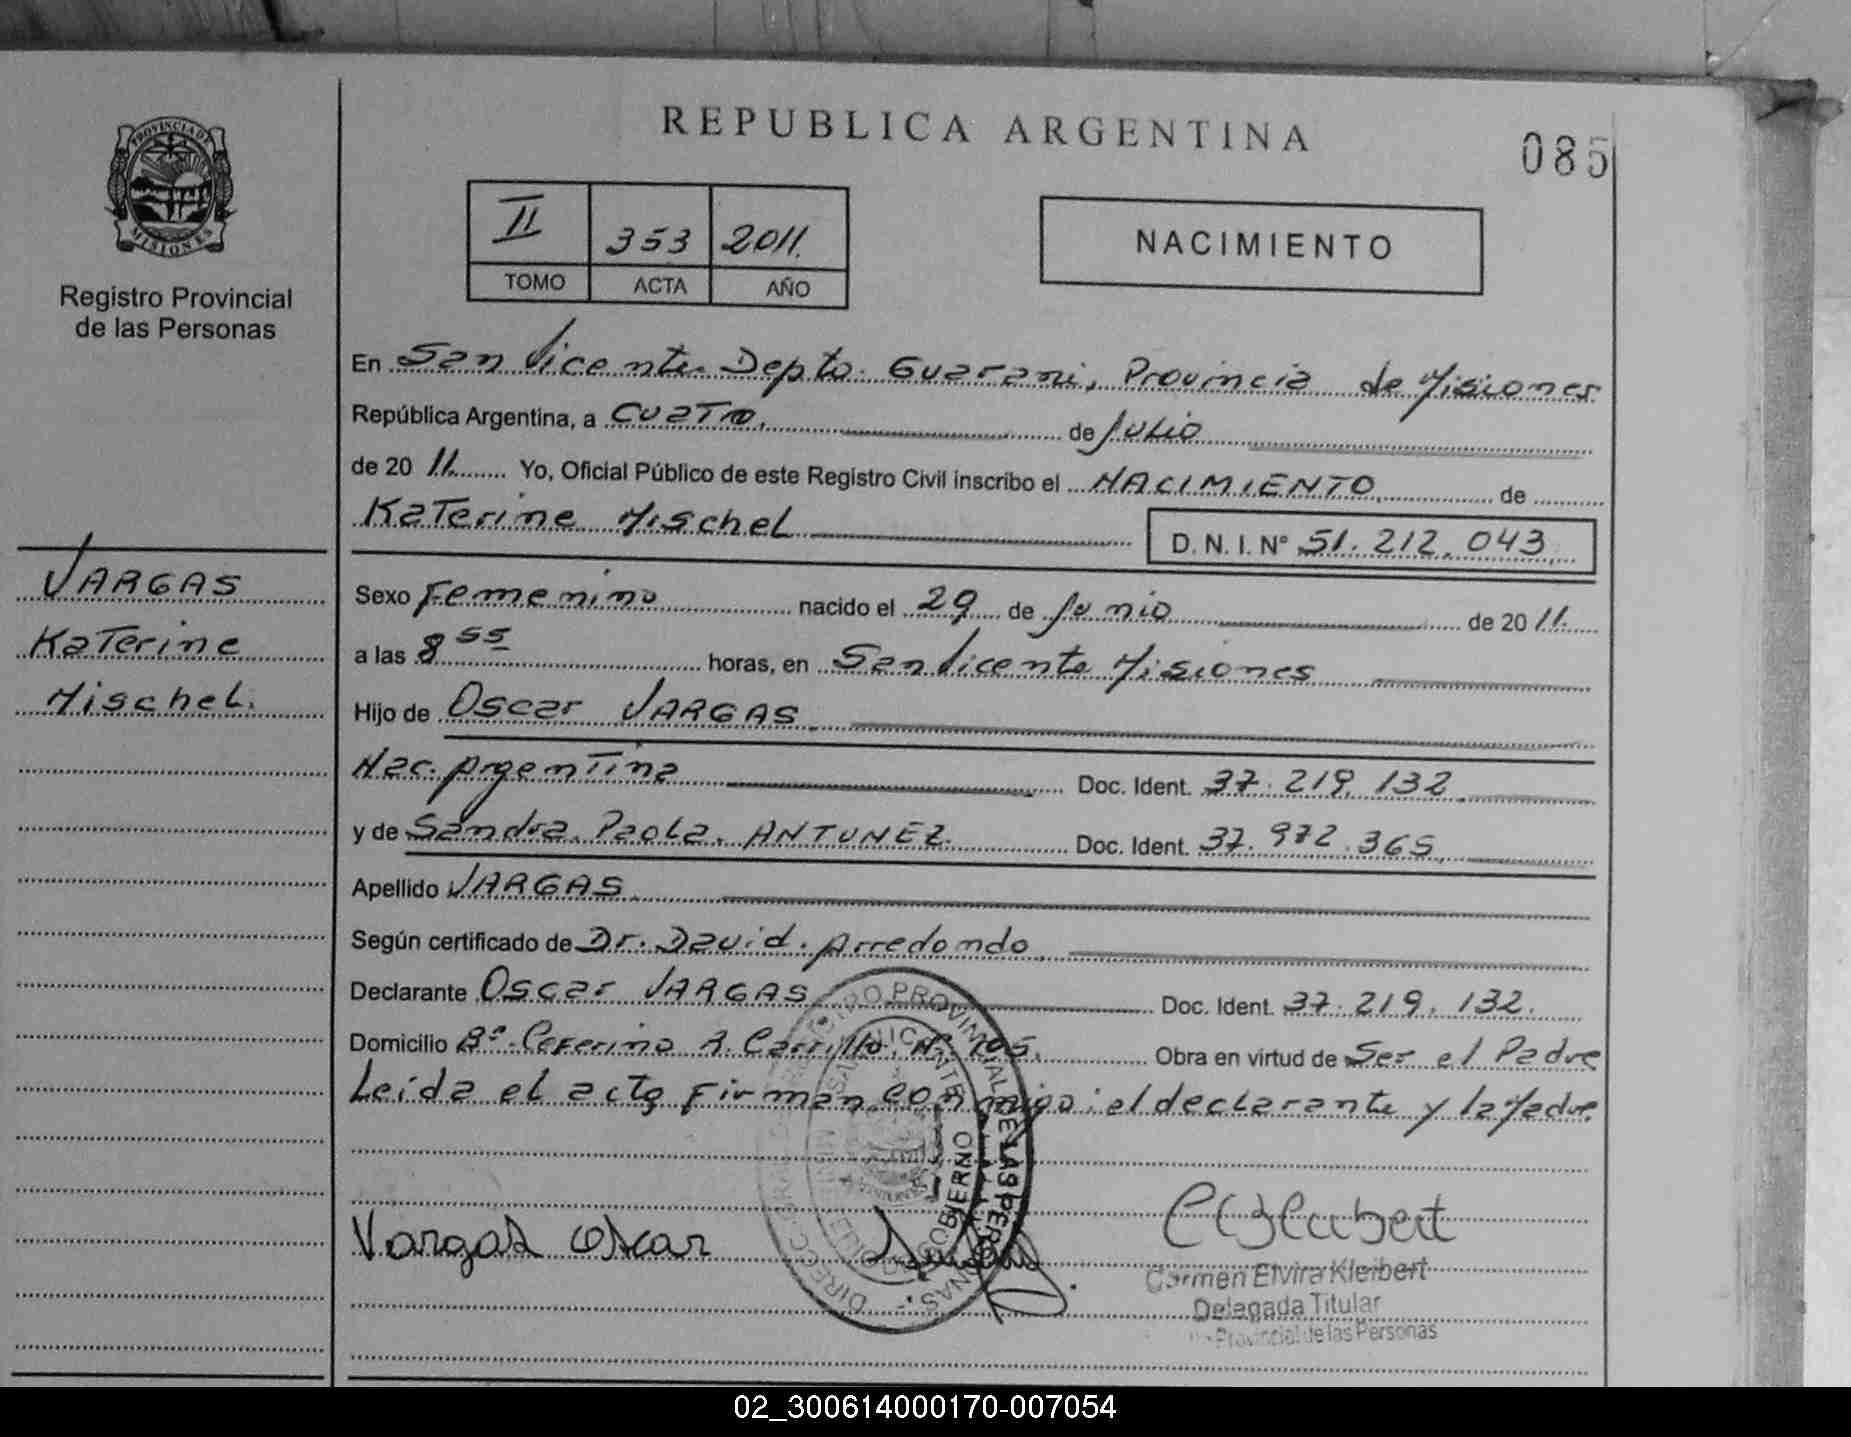 REPUBLICA ARGENTINA
085
PROVINCIA DE
MISIONES
Registro Provincial
de las Personas
II 353 2011.
TOMO ACTA AÑO
NACIMIENTO
En San Vicente Depto. Guarani, Provincia de Misiones
República Argentina, a cuatro. de Julio
de 20 11. Yo, Oficial Público de este Registro Civil inscribo el NACIMIENTO de
Katerine Mischel
D.N.I. Nº 51.212.043
VARGAS
Katerine
Mischel.
Sexo Femenino nacido el 29 de Junio de 20 11.
a las 8 55 horas, en San Vicente Misiones
Hijo de Oscar VARGAS
Nac. Argentina Doc. Ident. 37.219.132
y de Sandra Paola ANTUNEZ. Doc. Ident. 37.972.365
Apellido VARGAS
Según certificado de Dr. David Arredondo
Declarante Oscar VARGAS Doc. Ident. 37.219.132.
Domicilio Bº Ceferino R. Carrillo Nº 105. Obra en virtud de Ser el Padre
Leida el acta Firman conmigo: el declarante y la Madre
Vargas Oscar
Carmen Elvira Kleibert
Delegada Titular
Provincial de las Personas
02_300614000170-007054